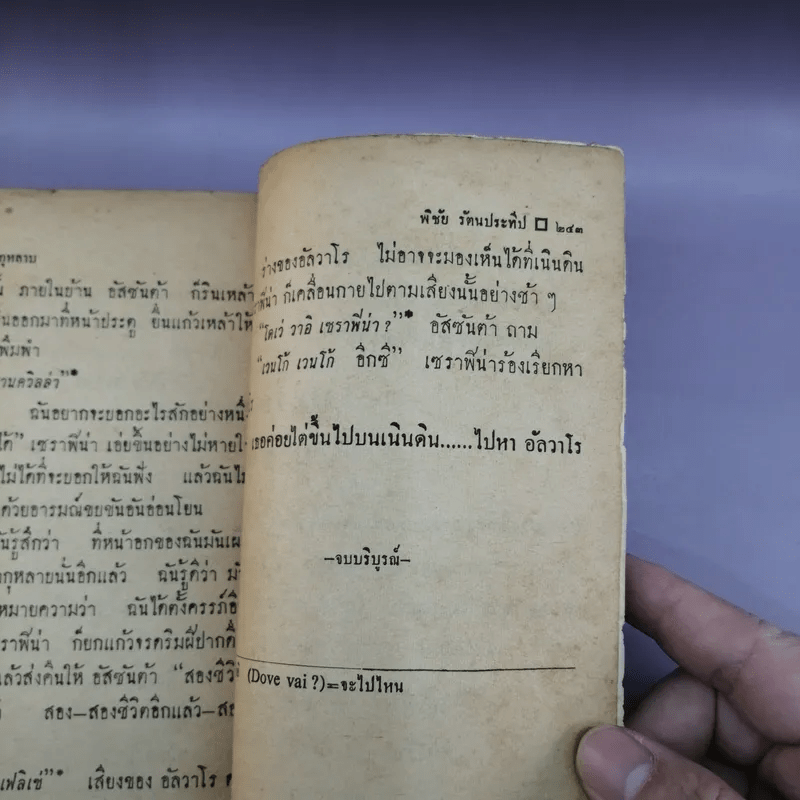 กุหลาบ
ภายในบ้าน อัสซันต้า ก็รินเหล้า
ออกมาที่หน้าประตู ยื่นแก้วเหล้าให้
พึมพำ
ฉันอยากจะบอกอะไรสักอย่างหนึ่
เซราฟีน่า เอ่ยขึ้นอย่างไม่หายใ
ไม่ได้ที่จะบอกให้ฉันฟัง แล้วฉันไ
ด้วยอารมณ์ขบขันอันอ่อนโยน
รู้สึกว่า ที่หน้าอกของฉันมันเผ
กุหลาบนั้นอีกแล้ว ฉันรู้ดีว่า
หมายความว่า ฉันได้ตั้งครรภ์อี
ราฟีน่า ก็ยกแก้วจรดริมฝีปากดื่
แล้วส่งคืนให้ อัสซันต้า "สองชีวิ
สอง–สองชีวิตอีกแล้ว–สอ
เฟลิเช่"* เสียงของ อัลวาโร
พิชัย รัตนประทีป □ ๒๔๓
ร่างของอัลวาโร ไม่อาจจะมองเห็นได้ที่เนินดิน
ราฟีน่า ก็เคลื่อนกายไปตามเสียงนั้นอย่างช้า ๆ
"โดเว่ วาอิ เซราฟีน่า ?"* อัสซันต้า ถาม
"เวนโก้ เวนโก้ อิกซี่" เซราฟีน่าร้องเรียกหา
เธอค่อยไต่ขึ้นไปบนเนินดิน......ไปหา อัลวาโร
–จบบริบูรณ์–
(Dove vai ?)=จะไปไหน